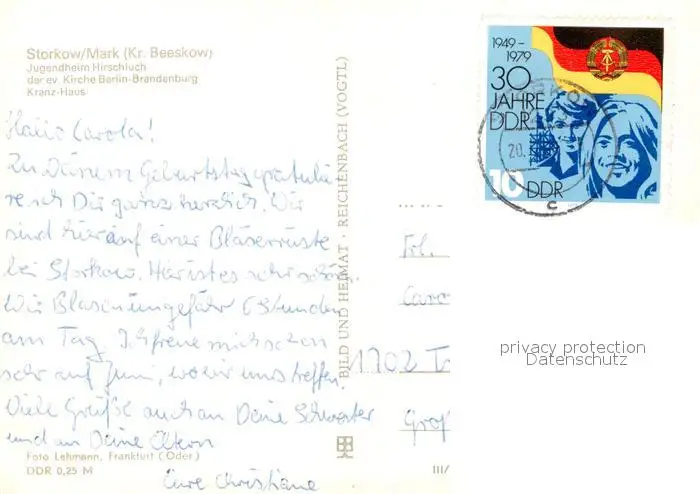 Storkow/Mark (Kr. Beeskow)
Jugendheim Hirschluch
der ev. Kirche Berlin-Brandenburg
Kranz-Haus
Hallo Carola!
Zu Deinem Geburtstag gratulie
re ich Dir ganz herzlich. Wir
sind hier auf einer Bläserrüste
bei Storkow. Hier ist es sehr schön.
Wir Blasen ungefähr 6 Stunden
am Tag. Ich freue mich schon
sehr auf Juni, wo wir uns treffen.
Viele Grüße auch an Deine Schwester
und an Deine Eltern
Eure Christiane
Foto Lehmann, Frankfurt (Oder)
DDR 0,25 M
BILD UND HEIMAT · REICHENBACH (VOGTL)
III/
1949-
1979
30
JAHRE
DDR
10 DDR
STORKOW
20.
c
Frl.
Caro
1702 T
Groß
privacy protection
Datenschutz